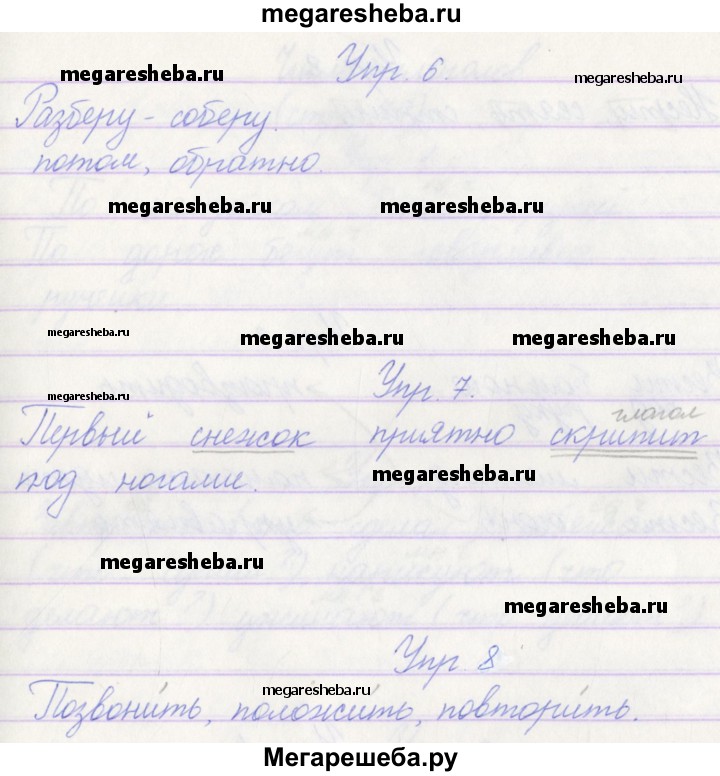 megaresheba.ru
Упр. 6.
megaresheba.ru
megaresheba.ru
Разберу - соберу.
потом, обратно.
megaresheba.ru
megaresheba.ru
megaresheba.ru
megaresheba.ru
megaresheba.ru
Упр. 7.
megaresheba.ru
глагол
Первый снежок приятно скрипит
под ногами.
megaresheba.ru
megaresheba.ru
megaresheba.ru
Упр. 8
megaresheba.ru
Позвони́ть, положи́ть, повтори́ть.
Мегарешеба.ру